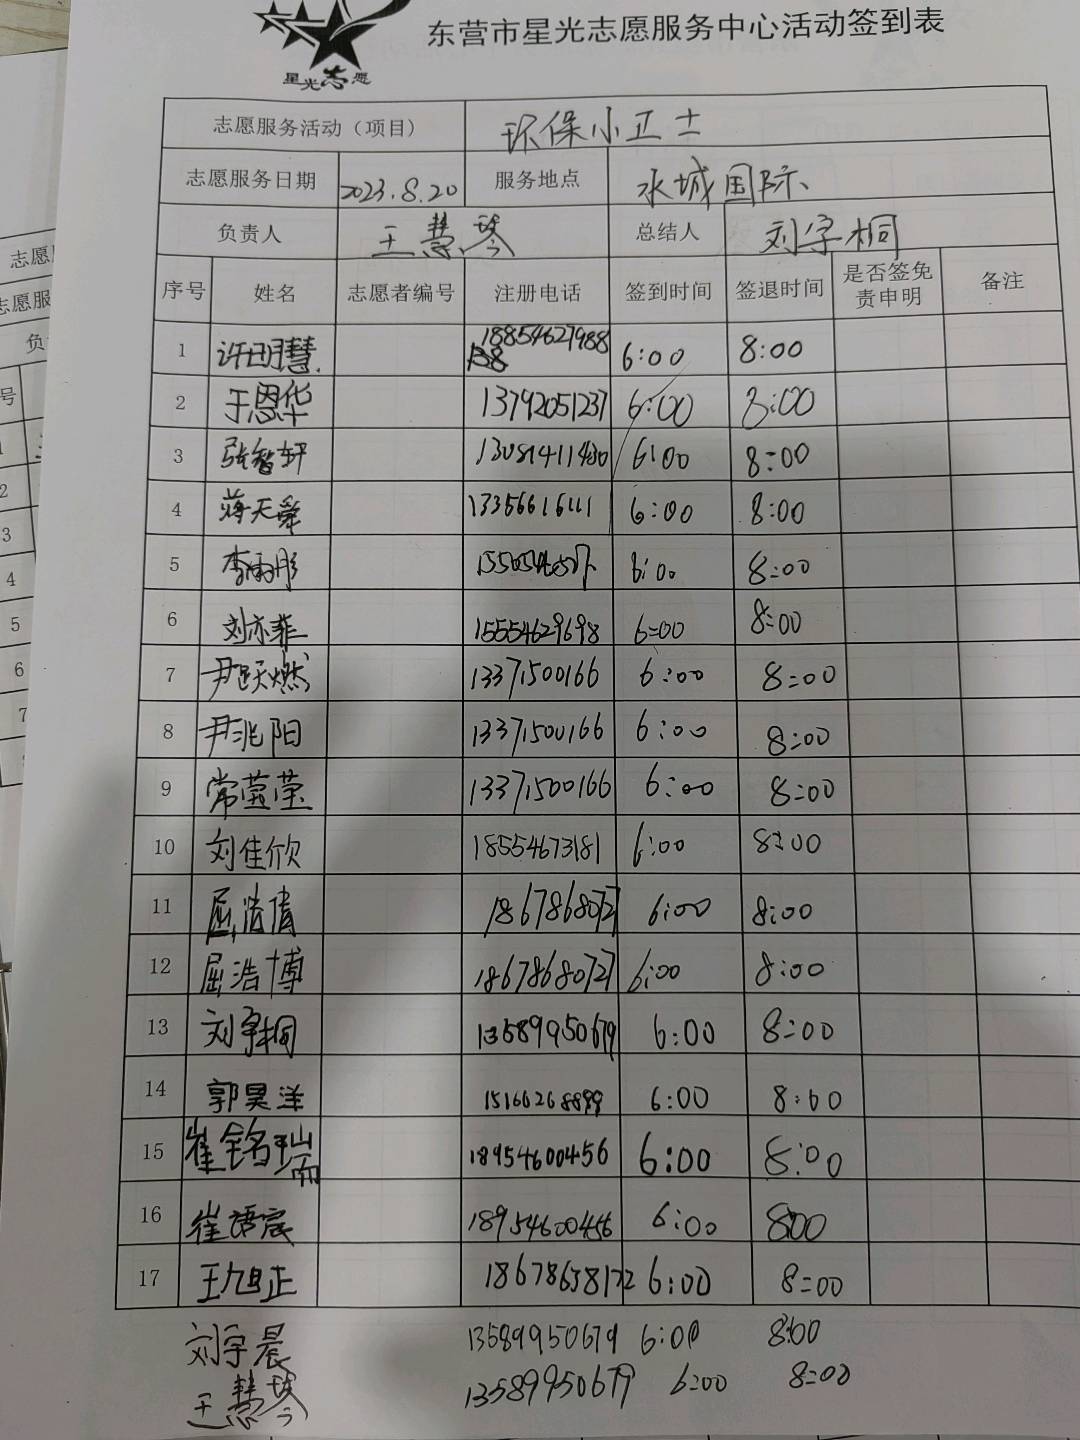 星光志愿
东营市星光志愿服务中心活动签到表
志愿服务活动（项目） 环保小卫士
志愿服务日期 2023.8.20 服务地点 水城国际
负责人 王慧琴 总结人 刘宇桐
序号 姓名 志愿者编号 注册电话 签到时间 签退时间 是否签免责申明 备注
1 许玥慧 18854627988 6:00 8:00
2 于恩华 13792051237 6:00 8:00
3 张智轩 6:00 8:00
4 蒋天舜 6:00 8:00
5 李雨彤 6:00 8:00
6 刘亦菲 15554629698 6:00 8:00
7 尹跃燃 13371500166 6:00 8:00
8 尹兆阳 13371500166 6:00 8:00
9 常莹莹 13371500166 6:00 8:00
10 刘佳欣 18554673181 6:00 8:00
11 屈浩倩 18678680727 6:00 8:00
12 屈浩博 18678680727 6:00 8:00
13 刘宇桐 13589950679 6:00 8:00
14 郭昊洋 15166268899 6:00 8:00
15 崔铭瑞 18954600456 6:00 8:00
16 崔语宸 18954600456 6:00 8:00
17 王旭正 18678638172 6:00 8:00
刘宇晨 13589950679 6:00 8:00
王慧琴 13589950679 6:00 8:00